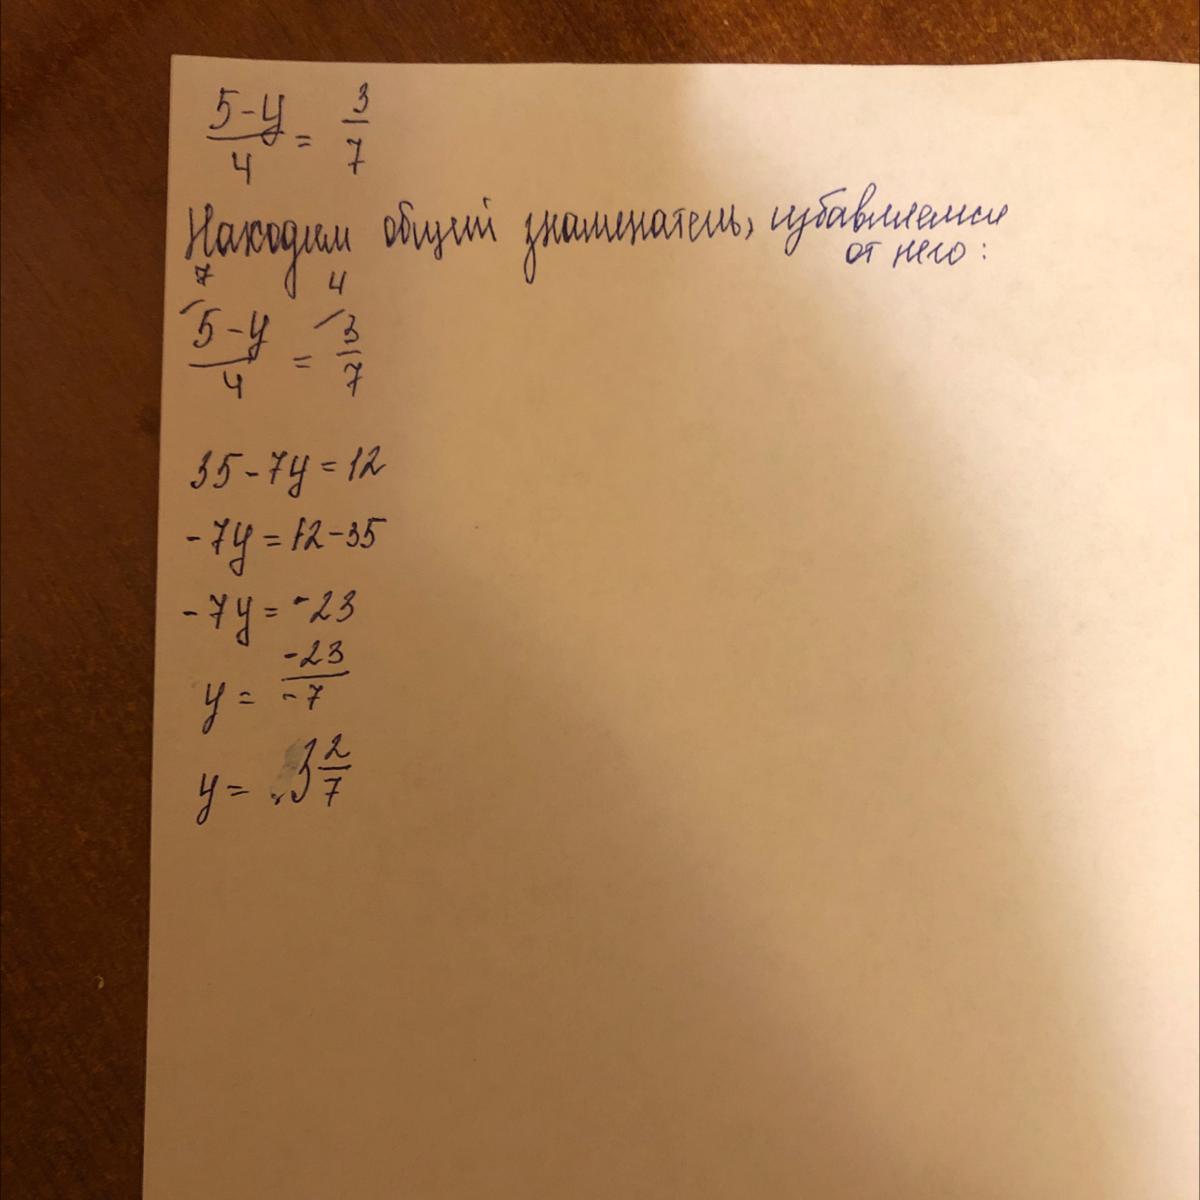 5-y/4 = 3/7
Находим общий знаменатель, избавляемся
от него:
7 4
5-y/4 = 3/7
35-7y=12
-7y=12-35
-7y=-23
y= -23/-7
y= 3 2/7